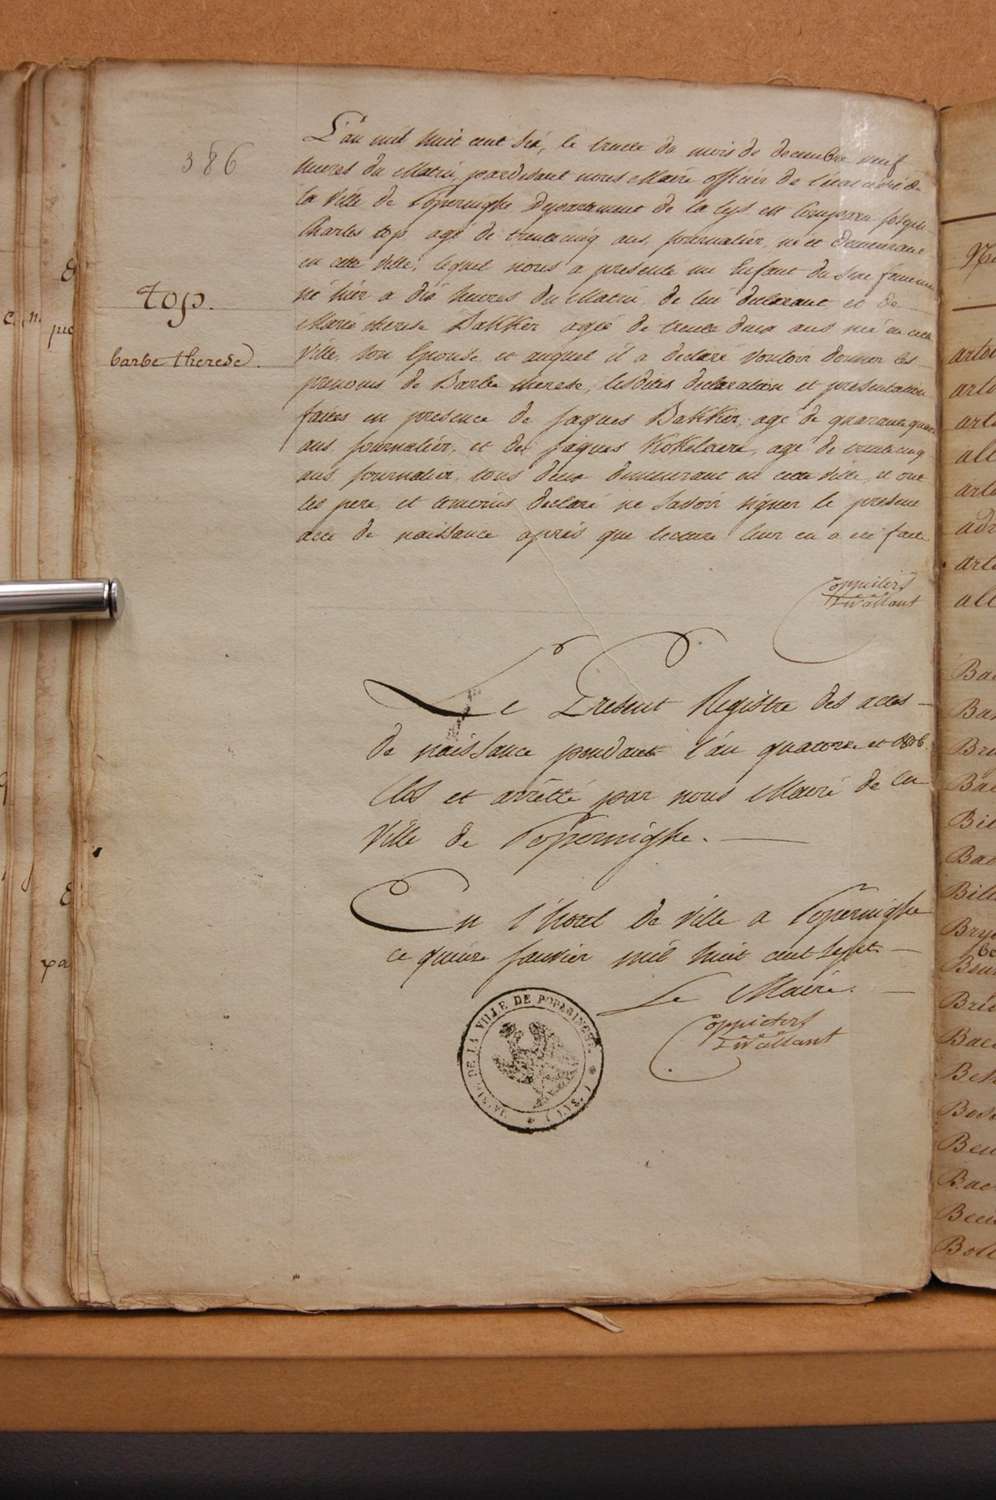 386
top.
barbe therese.
L'an mil huit cent six, le trente du mois de decembre neuf
heures du Matin, pardevant nous Maire officier de l'état civil de
la Ville de Poperinghe Departement de la Lys est comparu Joseph
Charles top agé de trente cinq ans, journalier, né et demeurant
en cette Ville, lequel nous a presenté un Enfant du sexe feminin
né hier a dix heures du Matin, de lui declarant et de
Marie therese Dekker agée de trente deux ans née en cette
Ville, son Epouse et auquel il a declaré vouloir donner les
prenoms de Barbe therese, lesdites declaration et presentation
faites en presence de Jaques Dekker, agé de quarante quatre
ans journalier, et de Jaques agé de trente cinq
ans journalier, tous deux demeurant en cette Ville, et ont
les pere et temoins declaré ne savoir signer le present
acte de naissance après que lecture leur en a été faite
Le Present Registre des actes
de naissance pendant l'an quatorze et 1806.
Clos et arretté par nous Maire de la
Ville de Poperinghe.
En l'hotel de Ville a Poperinghe
ce quinze Janvier mil huit cent sept
Le Maire.
MAIRIE DE LA VILLE DE POPERINGUE (LYS)
arte
arte
arte
all
arte
adr
arte
all
Bae
Ban
Bru
Bae
Bil
Bae
Bill
Brye
Brio
Bae
Beh
Bos
Beu
Bae
Beu
Boll